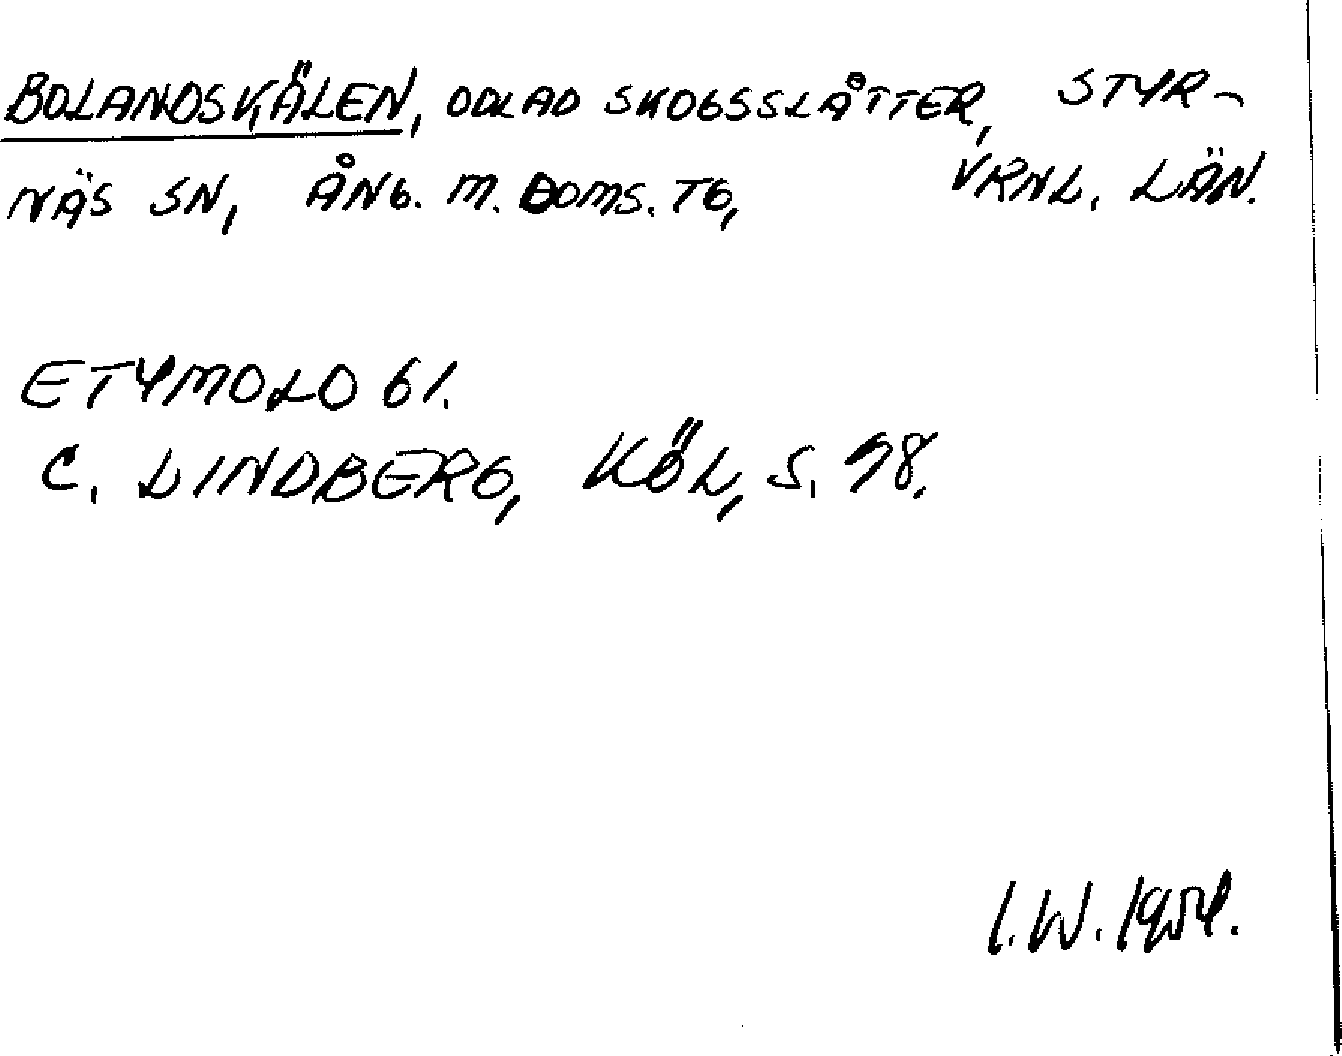 BOLANDSKÄLEN, ODLAD SKOGSSLÅTTER, STYR-
NÄS SN, ÅNG. M. DOMS. TG, VRNL. LÄN.
ETYMOLOGI.
C. LINDBERG, KÖL, S. 98.
I. W. 1954.